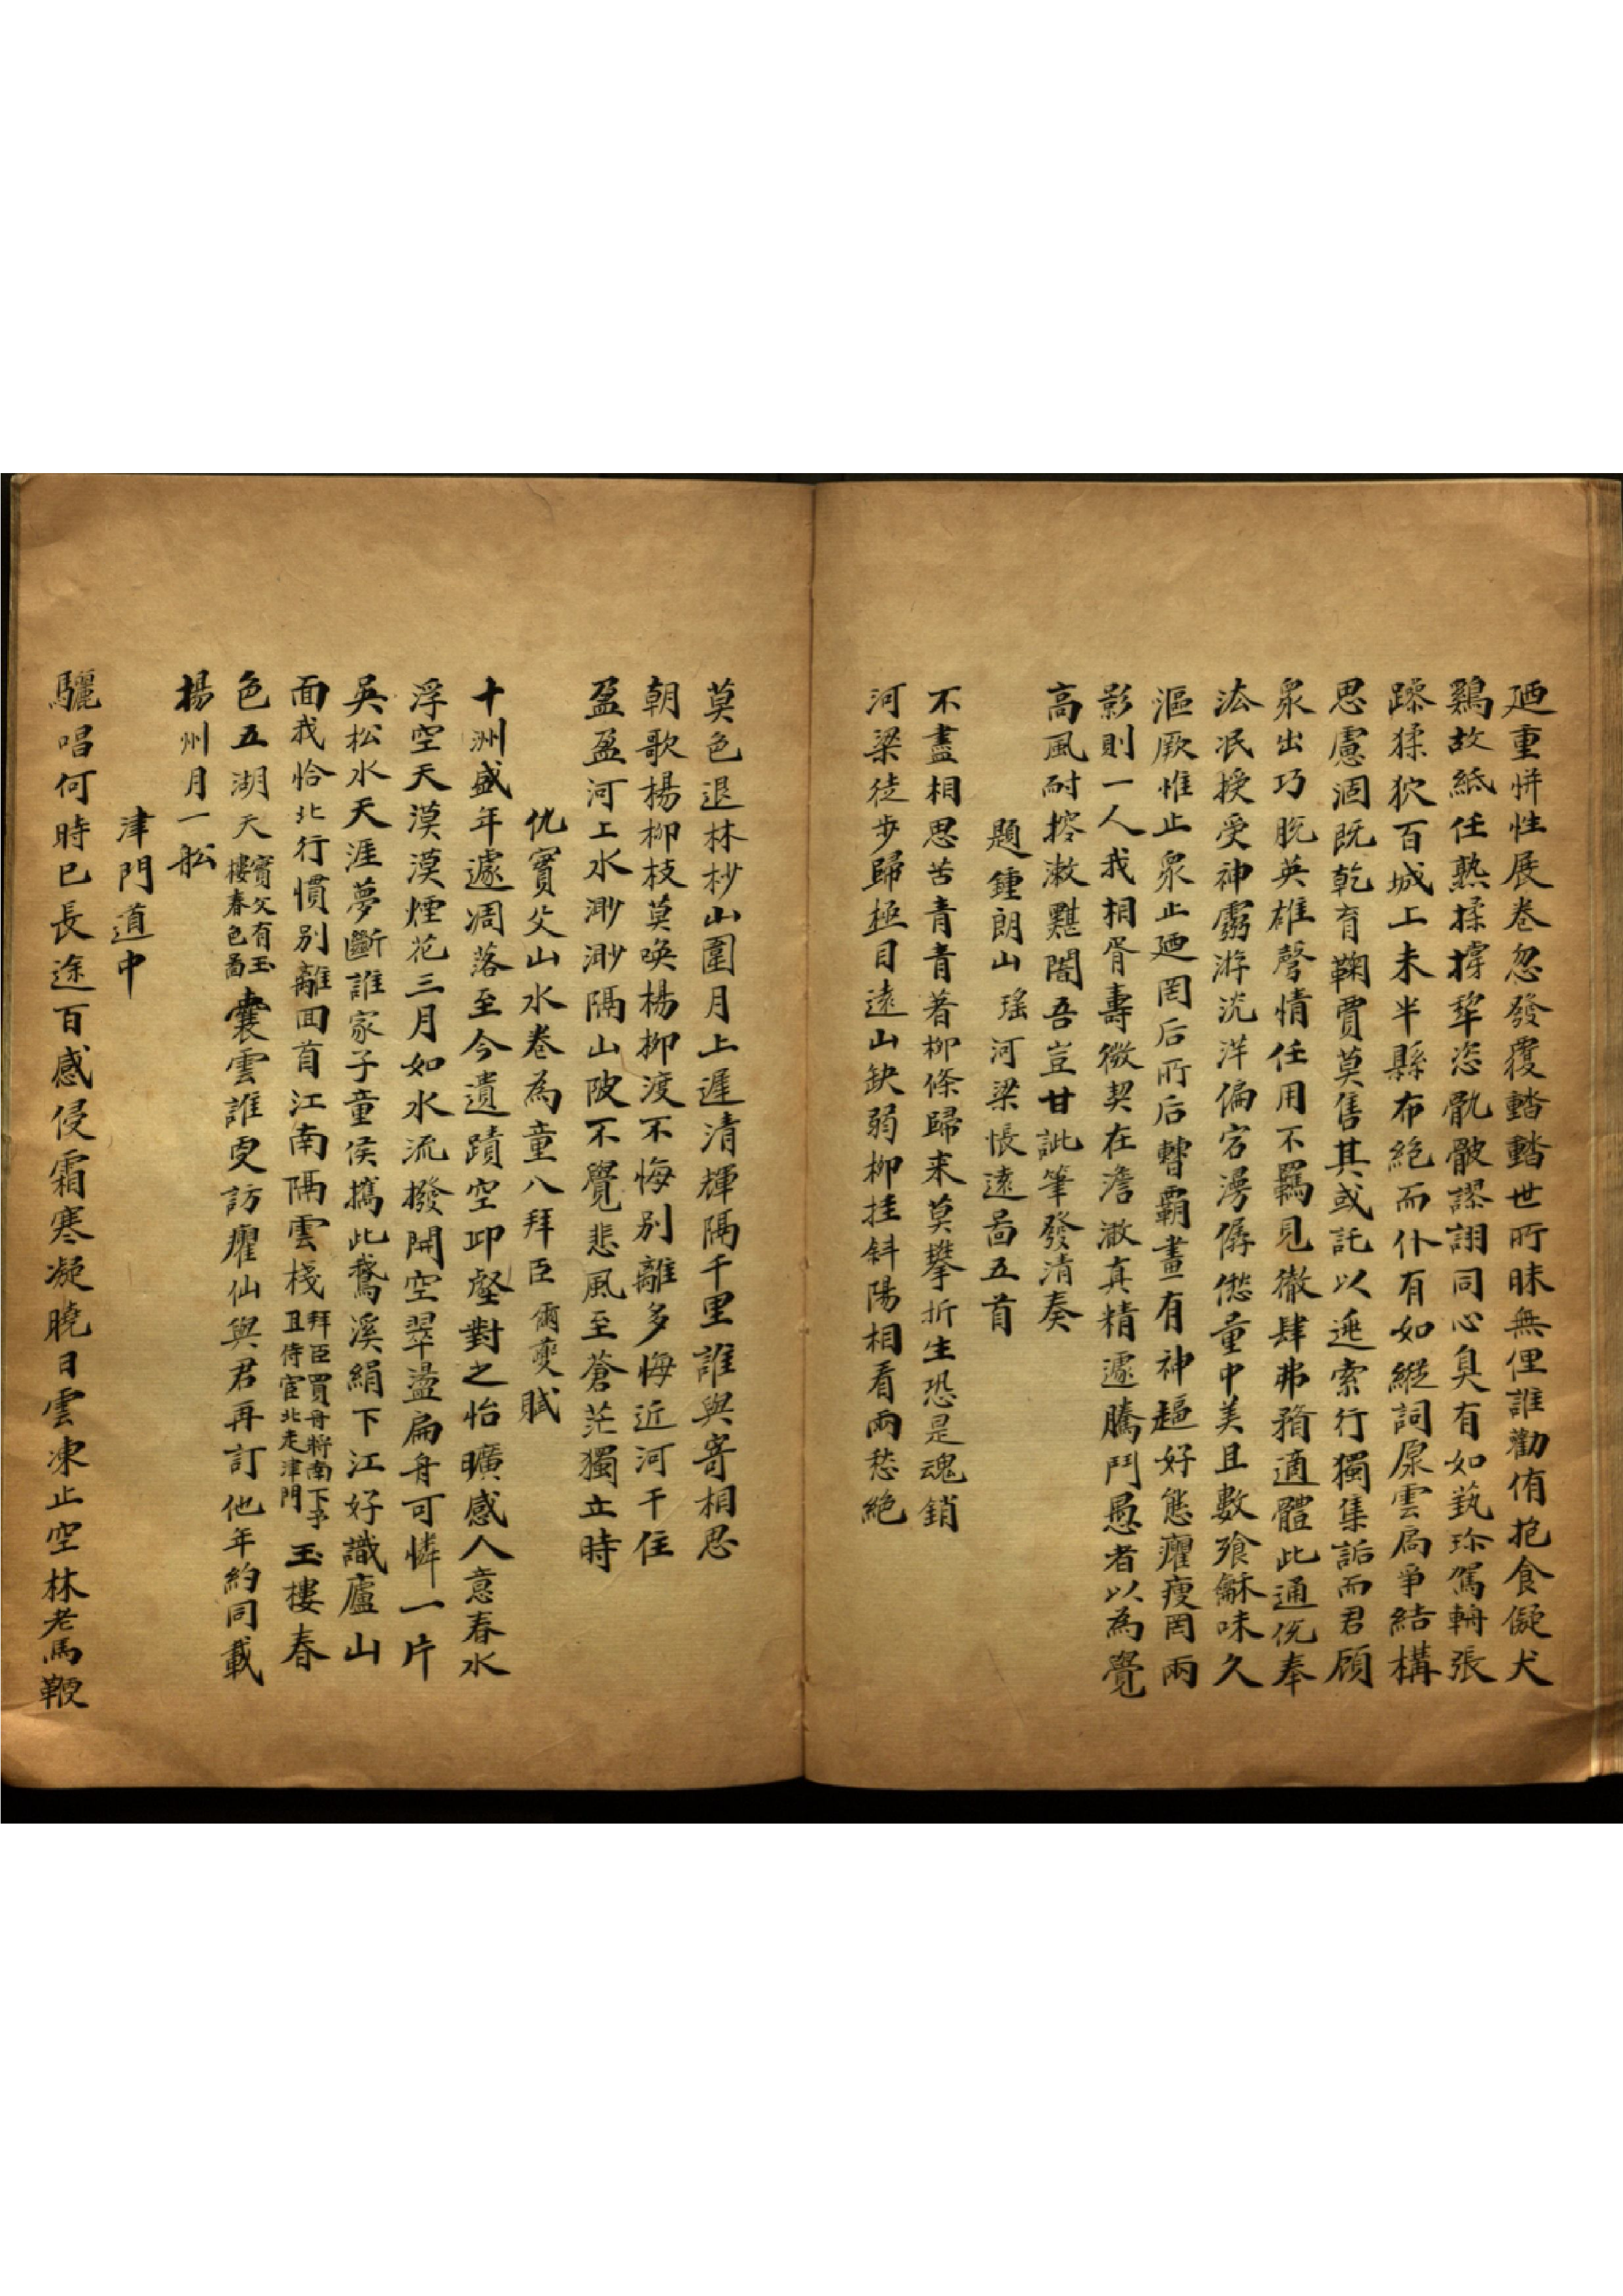 廼重恲性展卷忽發覆蹋蹋世所昧無俚誰勸侑抱食儗犬
鷄故紙任熟揉擣犂恣骩骳謬詡同心臭有如蓺珎駕輈張
蹂猱狖百城上未半縣布絕而仆有如縱詞原雲屬爭結構
思慮涸既乾育鞠賈莫售其或託以遯索行獨集詬而君顧
衆出巧脫英雄聲情任用不羈見徹肆弗猾適體此通侻奉
泫泯授受神靈游沇洋偏宕澷儜僽量中美且數飱龢味久
漚厥惟止衆止廼罔后所后轡霸畫有神逼好態癯瘦罔兩
影則一人我相胥壽微契在澹澉真精遽騰鬥愚者以為覺
高風耐搾漱黮闇吾豈甘訿筆發清奏
題鍾朗山瑤河梁悵遠啚五首
不盡相思苦青青著柳條歸来莫攀折生恐是魂銷
河梁徒步歸極目遠山缺弱柳挂斜陽相看兩愁絕
莫色退林杪山圍月上遲清輝隔千里誰與寄相思
朝歌楊柳枝莫喚楊柳渡不悔別離多悔近河干住
盈盈河上水渺渺隔山陂不覺悲風至蒼茫獨立時
仇實父山水卷為童八拜臣爾奭賦
十洲盛年遽凋落至今遺蹟空邱壑對之怡曠感人意春水
浮空天漠漠煙花三月如水流撥開空翠盪扁舟可憐一片
吳松水天涯夢斷誰家子童侯攜此鵞溪絹下江好識廬山
面我恰北行慣別離回首江南隔雲棧拜臣買舟將南下予且侍宦北走津門玉樓春
色五湖天實父有玉樓春色啚囊雲誰更訪癯仙與君再訂他年約同載
揚州月一船
津門道中
驪唱何時已長途百感侵霜寒凝曉日雲凍止空林老馬鞭